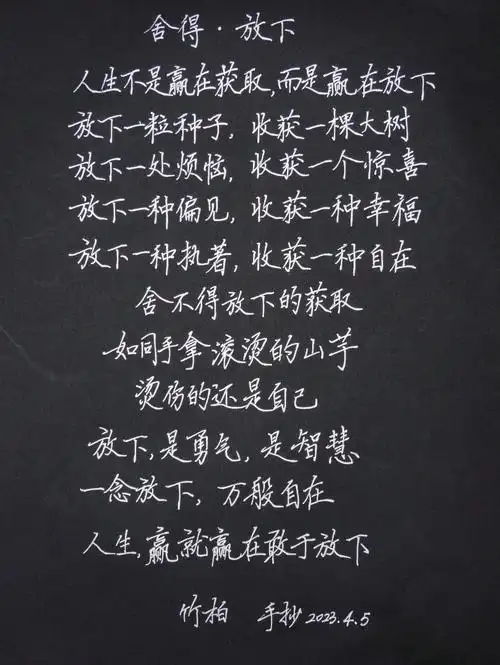 舍得·放下
人生不是赢在获取,而是赢在放下
放下一粒种子,收获一棵大树
放下一处烦恼,收获一个惊喜
放下一种偏见,收获一种幸福
放下一种执著,收获一种自在
舍不得放下的获取
如同手拿滚烫的山芋
烫伤的还是自己
放下,是勇气,是智慧
一念放下,万般自在
人生,赢就赢在敢于放下
竹柏 手抄2023.4.5